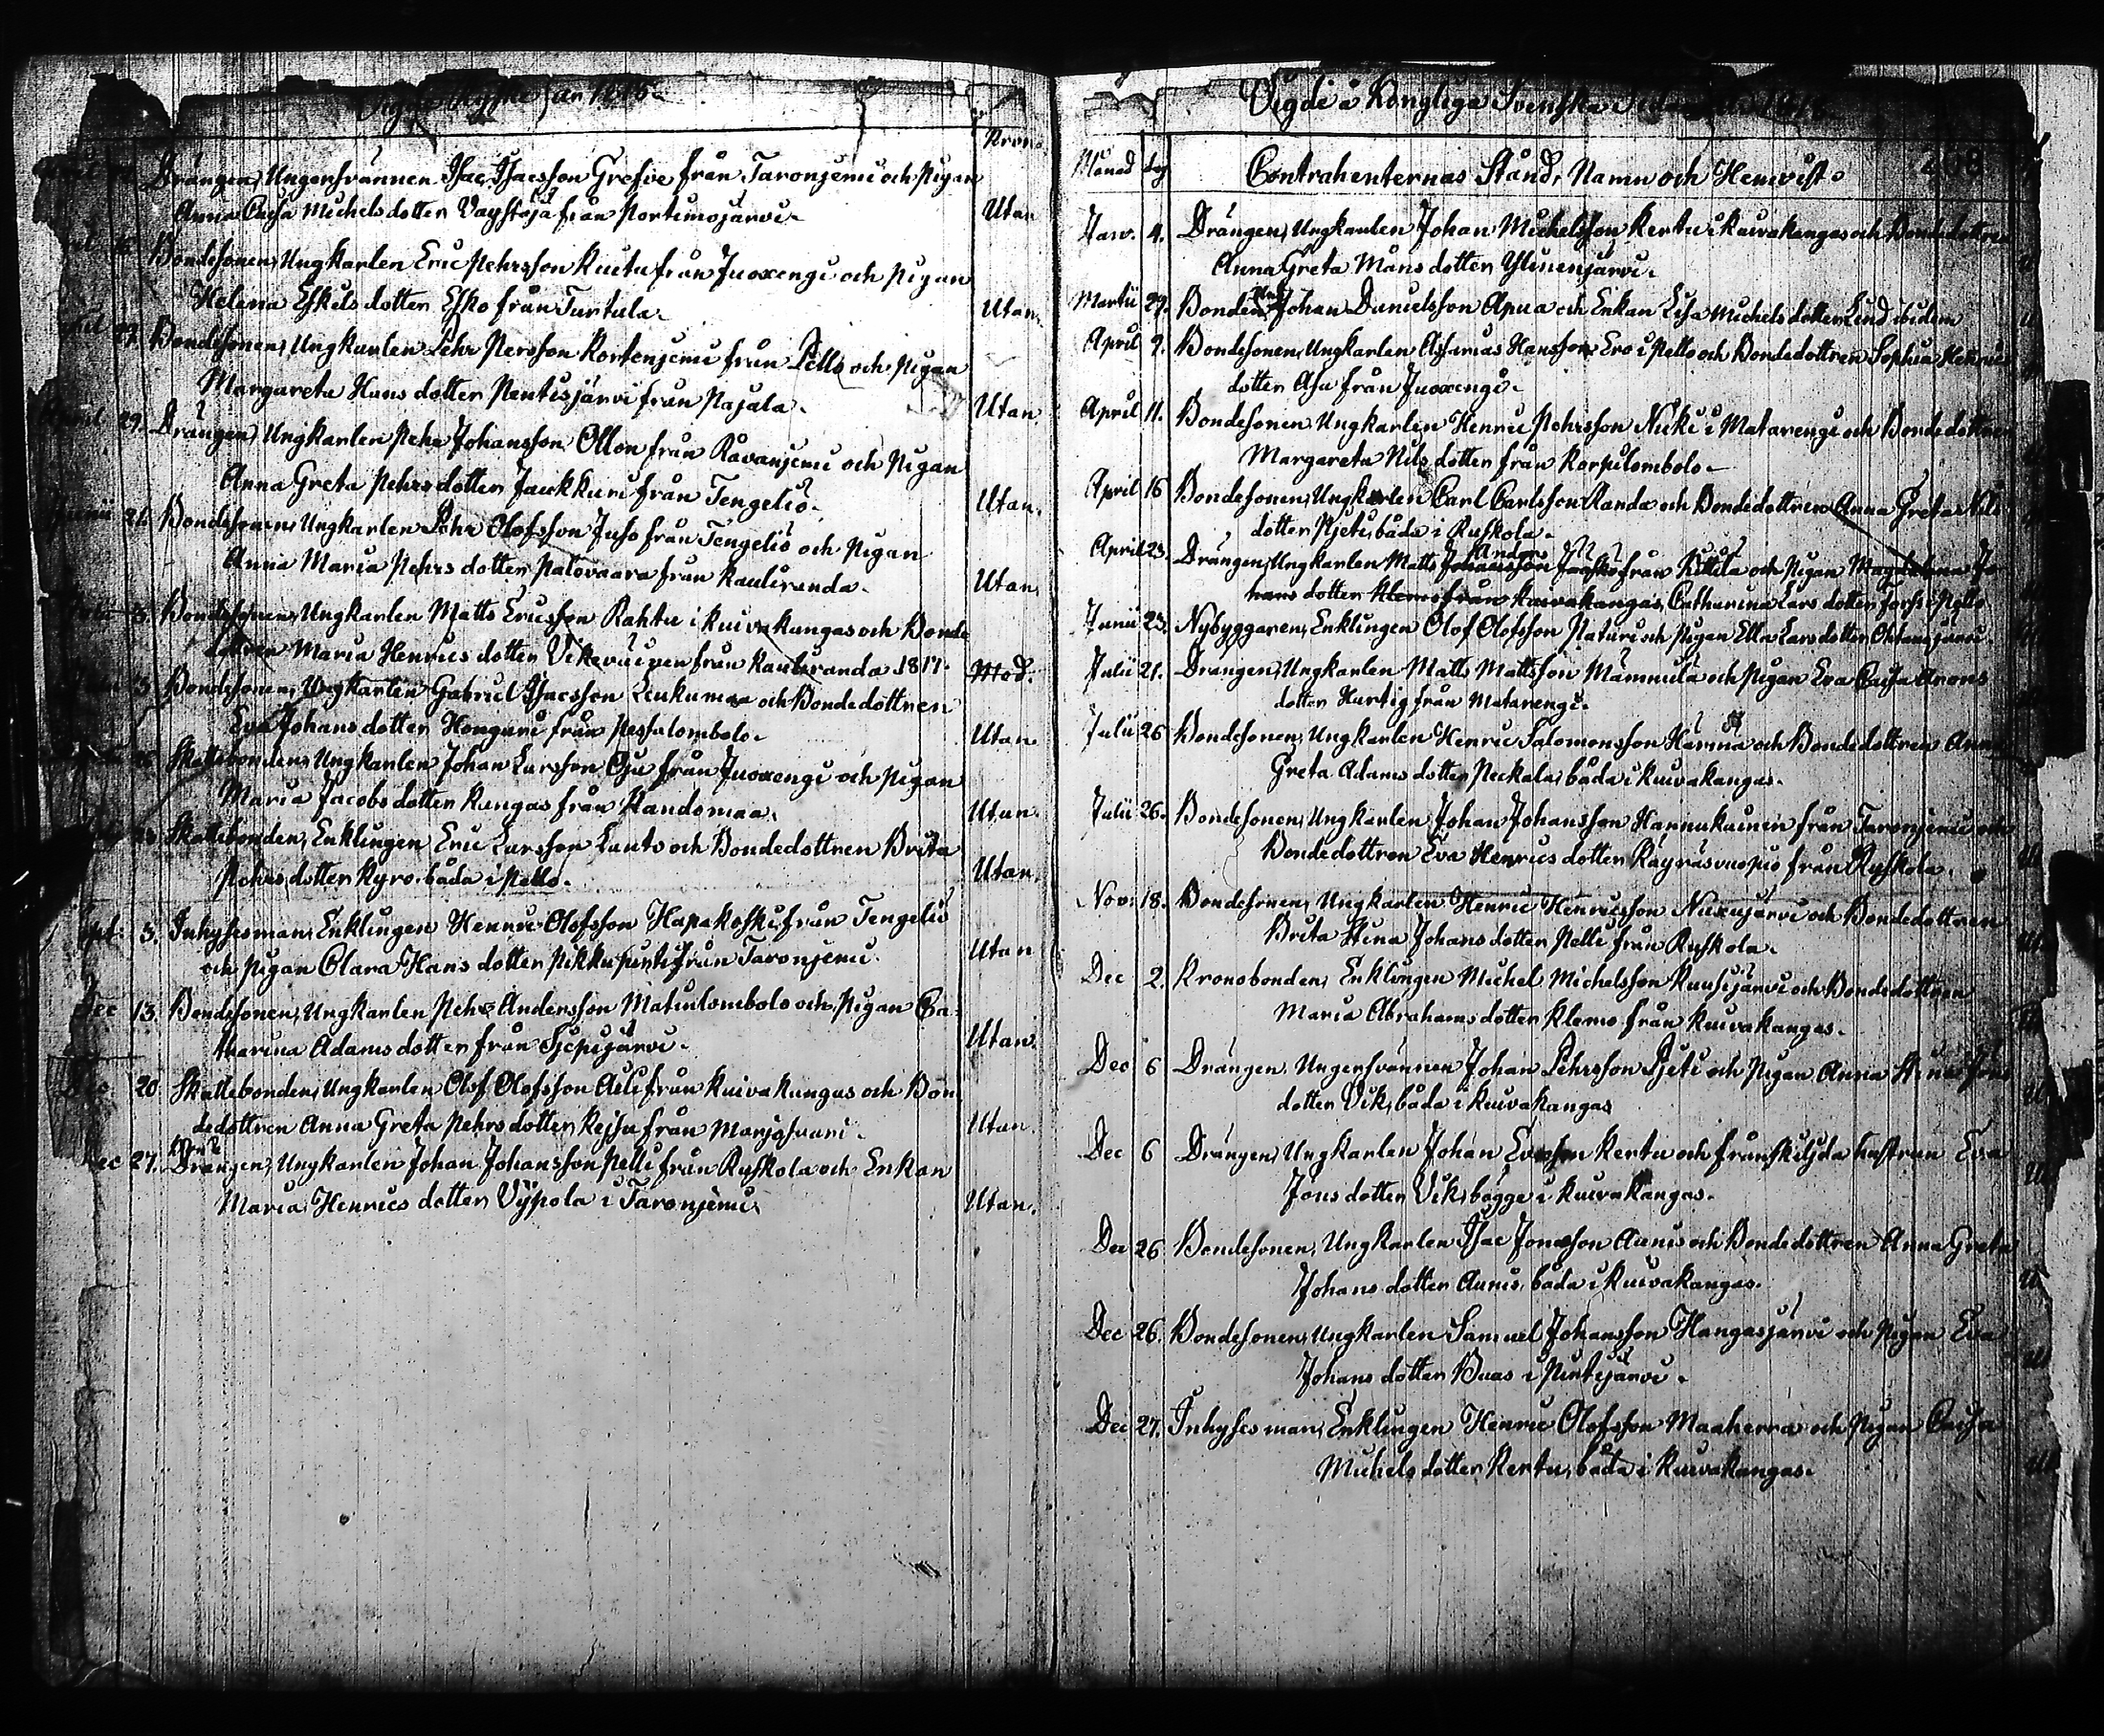 Vigde Ryska år 1815.
Kron
Drängen, Ungersvännen Isac Isacsson Grefve från Taronjemi och Pigan
Anna Caisa Michels dotter Vaystäjä från Portimojärvi.
Utan
Bondesonen, Ungkarlen Eric Pehrsson Kuitu från Juoxengi och Pigan
Helena Eskils dotter Esko från Turtula.
Utan.
April 27. Bondesonen, Ungkarlen Pehr Persson Kortenjemi från Pello och Pigan
Margareta Hans dotter Pentisjärvi från Pajala.
Utan.
April 29. Drängen, Ungkarlen Pehr Johansson Ollon från Ravanjemi och Pigan
Anna Greta Pehrs dotter Jaukkuri från Tengeliö.
Utan.
Junii 21. Bondesonen, Ungkarlen Pehr Olofsson Juso från Tengeliö och Pigan
Anna Maria Pehrs dotter Palovaara från Kauliranda.
Utan.
3. Bondesonen, Ungkarlen Matts Ericsson Rahtu i Kuivakangas och Bonde
dottren Maria Henrics dotter Vikeväinen från Kauliranda 1817.
Med.
3 Bondesonen, Ungkarlen Gabriel Isacsson Leukumaa och Bondedottren
Eva Johans dotter Honguri från Pessalombolo.
Utan.
Skattebonden, Ungkarlen Johan Larsson Oja från Juoxengi och Pigan
Maria Jacobs dotter Kangas från Kandomaa.
Utan.
Skattebonden, Enklingen Eric Larsson Lanto och Bondedottren Brita
Pehrs dotter Kyro båda i Pello.
Utan.
Sept. 3. Inhysesman, Enklingen Henric Olofsson Hapakoski från Tengeliö
och Pigan Clara Hans dotter Pikkupirti från Taronjemi.
Utan
Dec 13. Bondesonen, Ungkarlen Pehr Andersson Matinlombolo och Pigan Ca
tharina Adams dotter från Sjepijärvi.
Utan.
Dec 20 Skattebonden, Ungkarlen Olof Olofsson Aili från Kuivakangas och Bon
dedottren Anna Greta Pehrs dotter Kejsu från Marjosaari.
Utan.
Dec 27. Drängen, Ungkarlen Johan Johansson Pelli från Ruskola och Enkan
Maria Henrics dotter Vypola i Taronjemi.
Utan.
Vigde å Kongliga Svenska
Månad dag Contrahenternas Stånd, Namn och Hemvist.
Janv. 4. Drängen, Ungkarlen Johan Michelsson Kertu i Kuivakangas och Bondedottren
Anna Greta Måns dotter Ylinenjärvi.
Martii 29. Bonden Johan Danielsson Apua och Enkan Lisa Michels dotter Lind ibidem
April 9. Bondesonen, Ungkarlen Assarias Hansson Ero i Pello och Bondedottren Sophia Henrics
dotter Asu från Juoxengi.
April 11. Bondesonen Ungkarlen Henric Pehrsson Niki i Matarengi och Bondedottren
Margareta Nils dotter från Korpilombolo.
April 16 Bondesonen, Ungkarlen Carl Carlsson Randa och Bondedottren Anna Greta Nils
dotter Pjeti, båda i Ruskola.
Anders
April 23. Drängen, Ungkarlen Matts Johansson Jaasko från Kittilä och Pigan Magdalena Jo
hans dotter Klemo från Kuivakangas, Catharina Lars dotter
Junii 23. Nybyggaren, Enklingen Olof Olofsson Naturi och Pigan Ella Lars dotter Ohtanajärvi.
Julii 21. Drängen, Ungkarlen Matts Mattsson Mämmilä och Pigan Eva Caisa Arons
dotter Hurtig från Matarengi.
Julii 26 Bondesonen, Ungkarlen Henric Salomonsson Harma och Bondedottren Anna
Greta Adams dotter Peckala, båda i Kuivakangas.
Julii 26. Bondesonen, Ungkarlen Johan Johansson Hannukainen från Taronjemi och
Bondedottren Eva Henrics dotter Räyräsvuopio från Ruskola.
Nov. 18. Bondesonen, Ungkarlen Henric Henricsson Niexujärvi och Bondedottren
Brita Stina Johans dotter Pelli från Ruskola.
Dec 2. Kronobonden, Enklingen Michel Michelsson Kuusijärvi och Bondedottren
Maria Abrahams dotter Klemo från Kuivakangas.
Dec 6 Drängen, Ungersvännen Johan Pehrsson Pjeti och Pigan Anna Stina Jöns
dotter Vik, båda i Kuivakangas
Dec 6 Drängen, Ungkarlen Johan Evasson Kertu och frånskiljda hustrun Eva
Jöns dotter Vik, bägge i Kuivakangas.
Dec 26 Bondesonen, Ungkarlen Isac Jonasson Aunis och Bondedottren Anna Greta
Johans dotter Aunis, båda i Kuivakangas.
Dec 26. Bondesonen, Ungkarlen Samuel Johansson Hangasjärvi och Pigan Eva
Johans dotter Buas i Pirtijärvi.
Dec 27. Inhyses man, Enklingen Henric Olofsson Maaherra och Pigan Caisa
Michels dotter Kertu, båda i Kuivakangas.